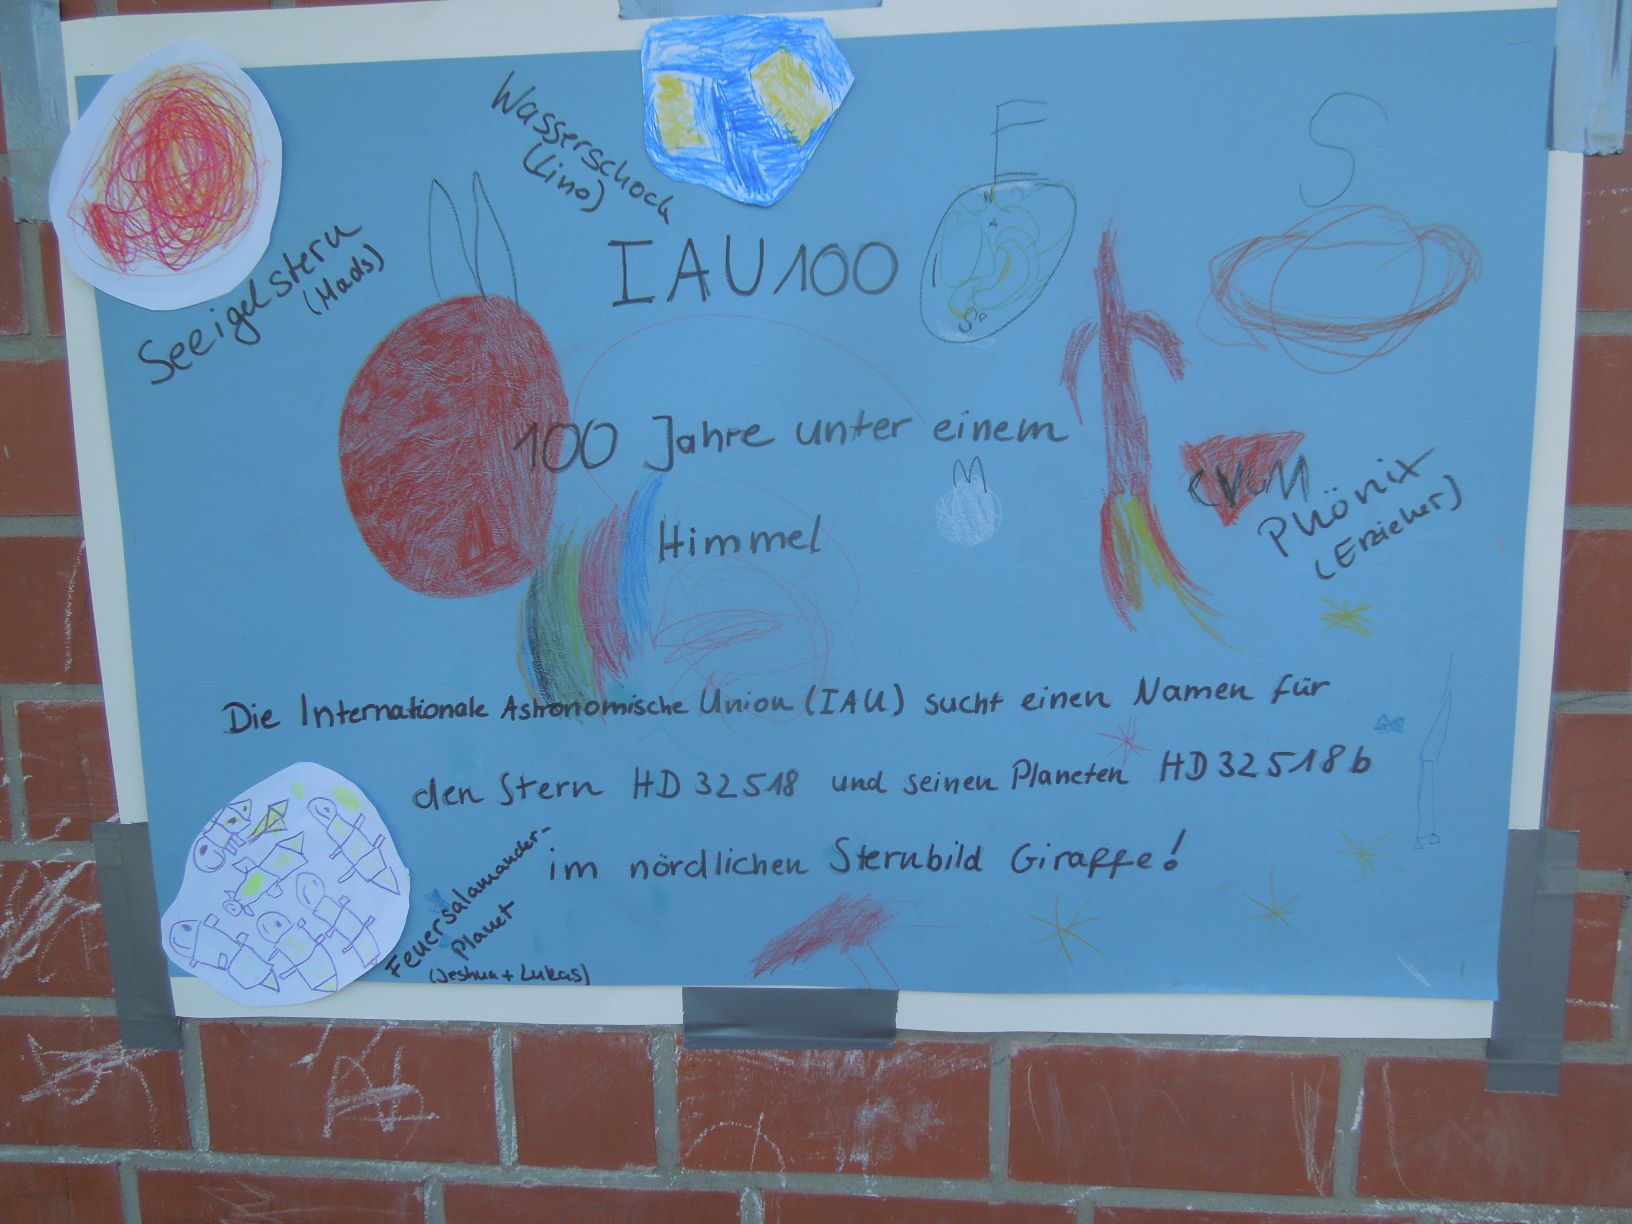 Wasserschock
(Lino)
Seeigelstern
(Mads)
M
E
S
IAU100
100 Jahre unter einem
Himmel
M
CVJM
Phönix
(Erzieher)
Die Internationale Astronomische Union (IAU) sucht einen Namen für
den Stern HD 32518 und seinen Planeten HD 32518 b
im nördlichen Sternbild Giraffe!
Feuersalamander-
planet
(Jeshua + Lukas)